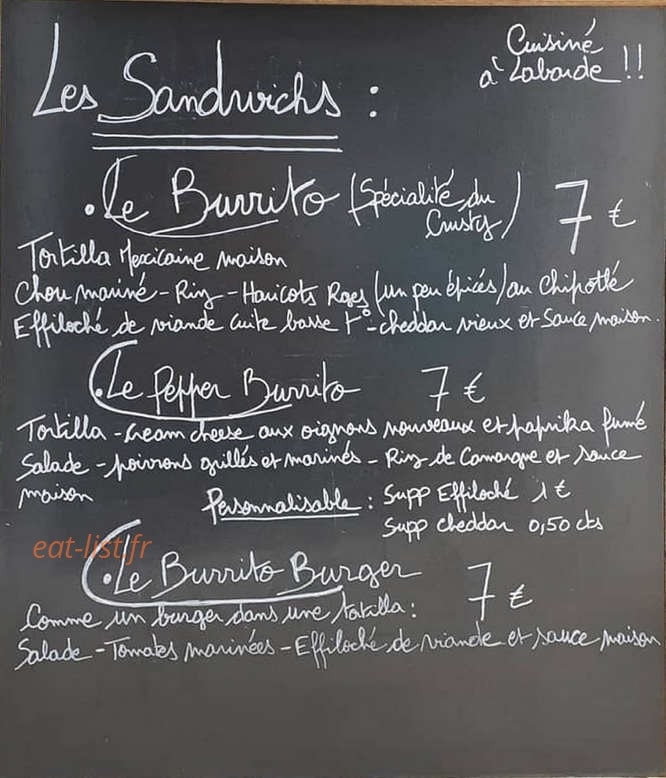 Cuisiné
à Labarde !!
Les Sandwichs :
• Le Burrito (Spécialité du Crusty) 7 €
Tortilla Mexicaine maison
Chou mariné - Riz - Haricots Roges (un peu épicés) au Chipotlé
Effiloché de viande cuite basse t° - cheddar vieux et Sauce maison.
• Le Pepper Burrito 7 €
Tortilla - cream cheese aux oignons nouveaux et paprika fumé
Salade - poivrons grillés et marinés - Riz de Camargue et sauce
maison
Personnalisable : Supp Effiloché 1 €
Supp cheddar 0,50 cts
eat-list.fr
• Le Burrito Burger 7 €
Comme un burger dans une tortilla :
Salade - Tomates marinées - Effiloché de viande et sauce maison